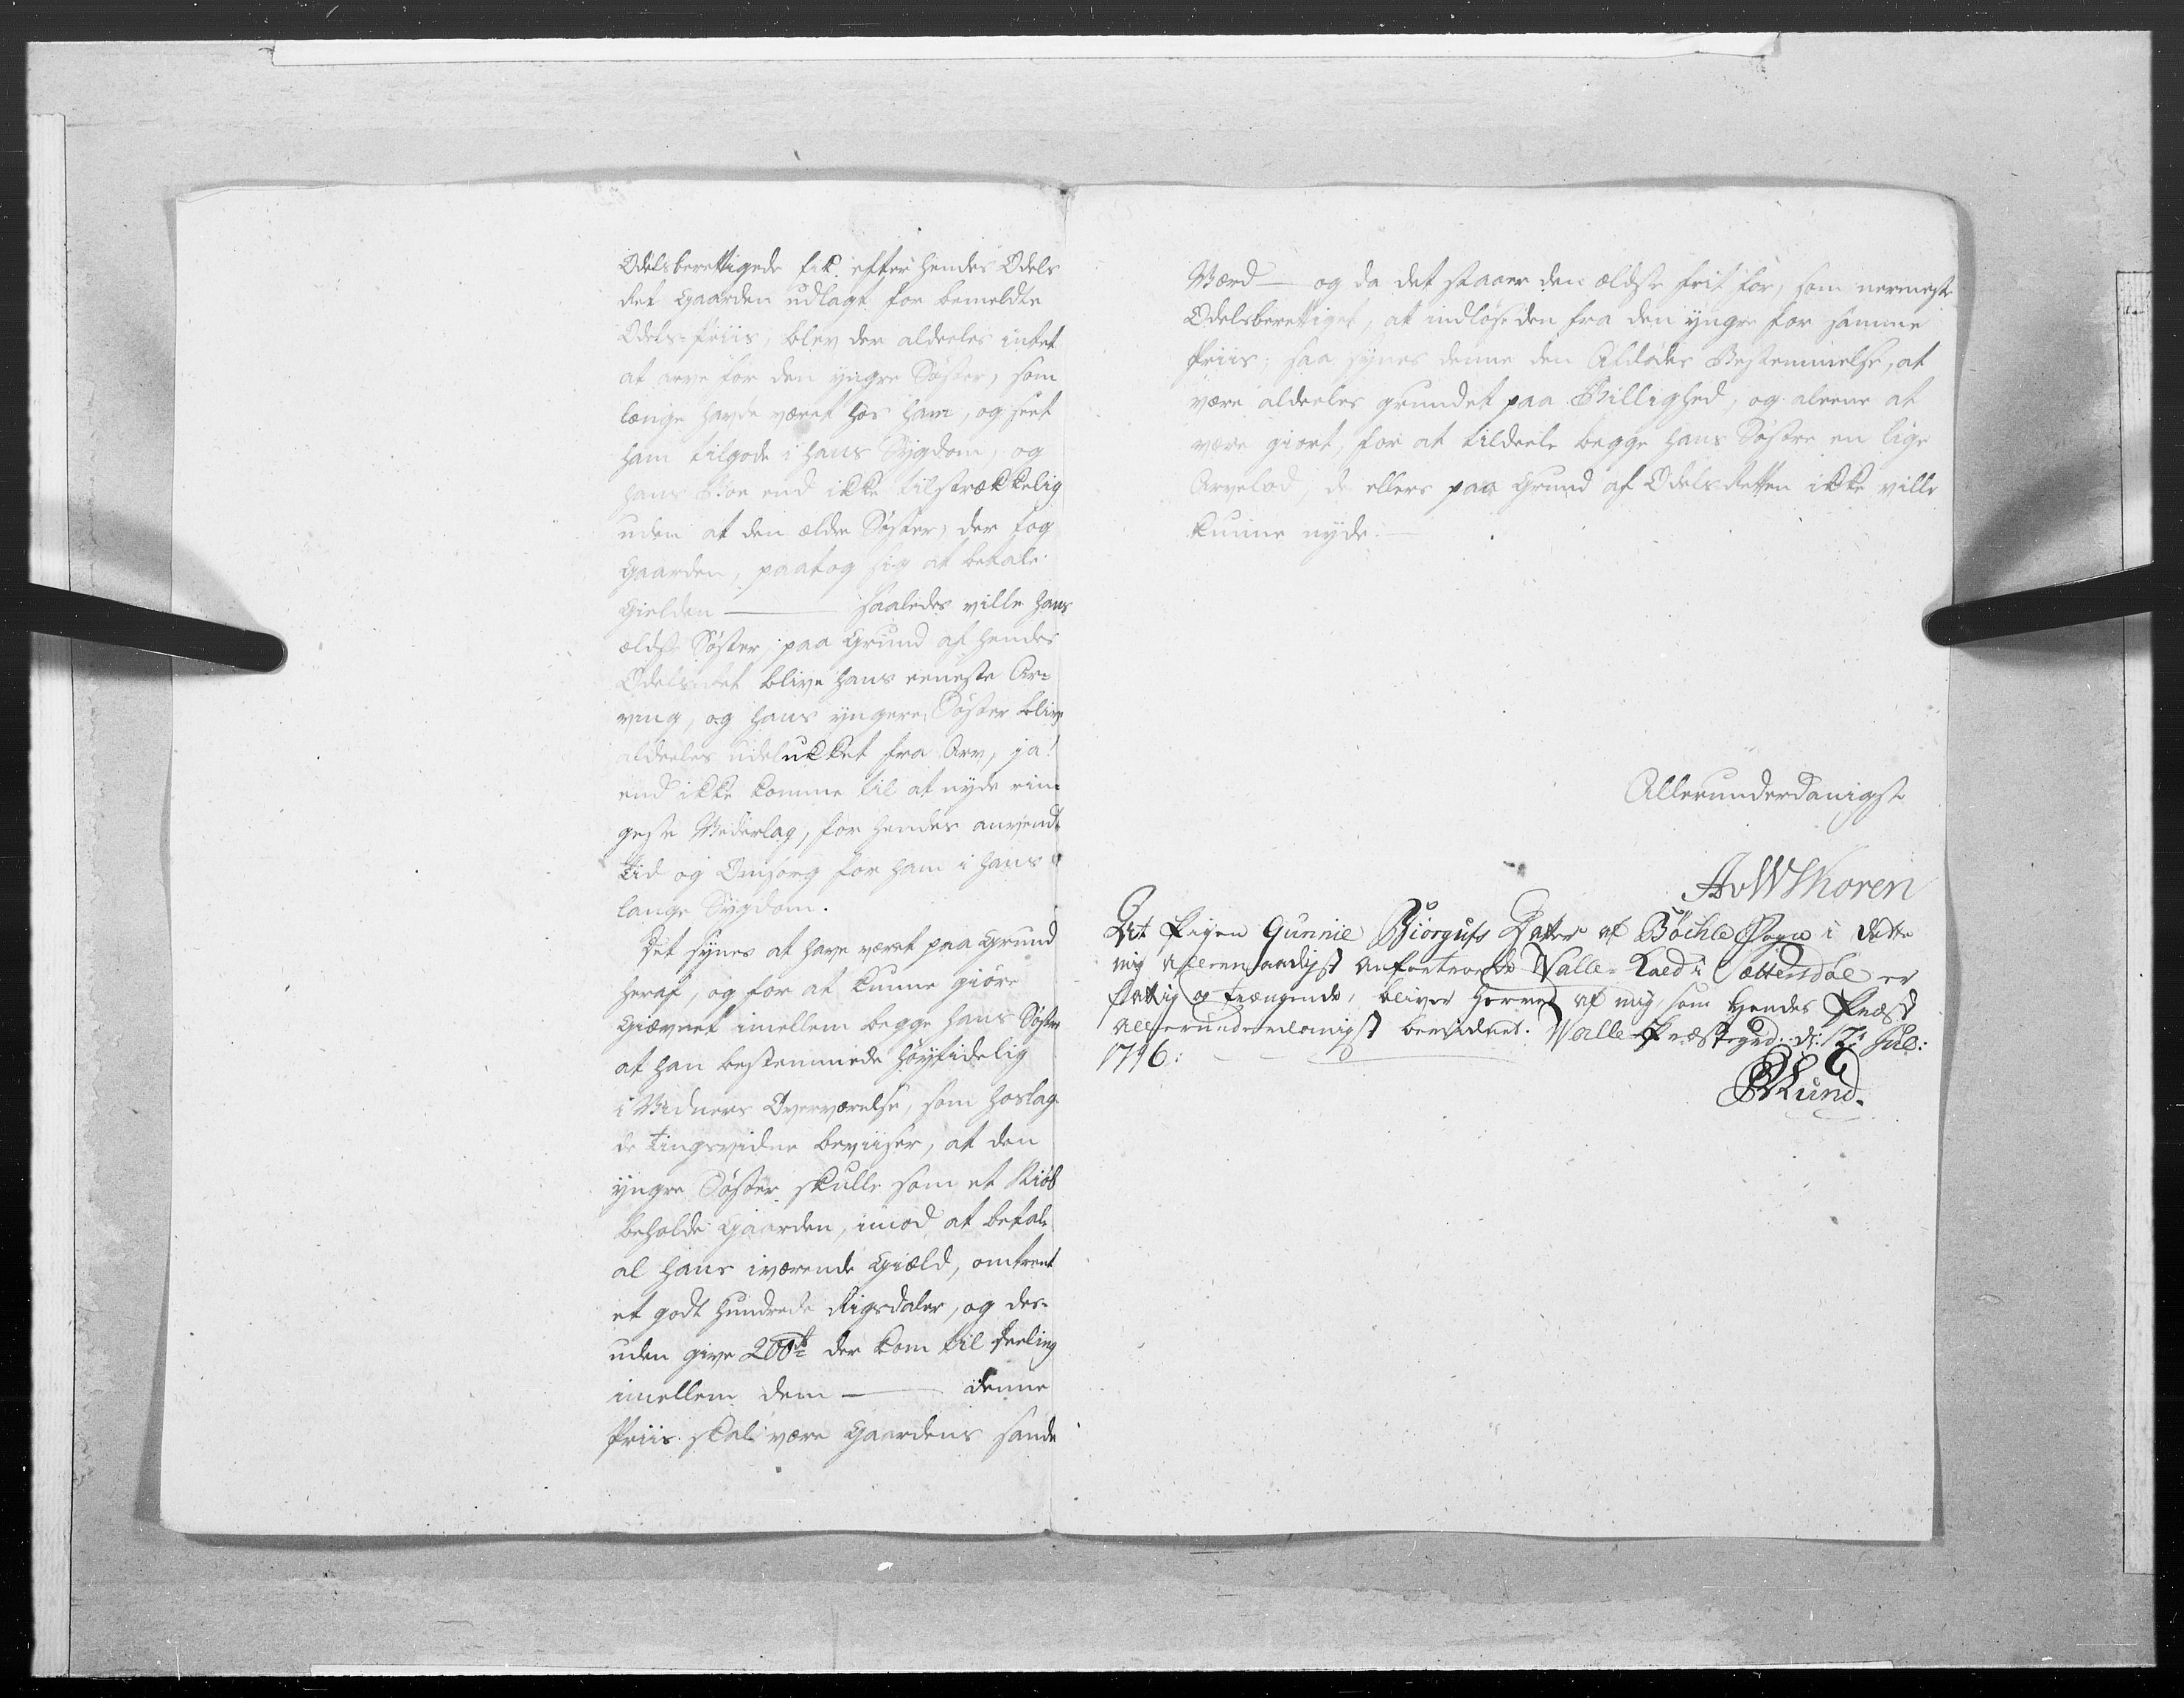 Odelsberettigede fik efter hendes Odels
Ret Gaarden udlagt for bemeldte
Odels-Priis, blev der aldeeles intet
at arve for den yngre Søster, som
længe havde været hos ham, og seet
ham tilgode i hans Sygdom, og
hans Boe end ikke tilstrækkelig
uden at den ældre Søster, der tog
Gaarden, paatog sig at betale
Gielden — saaledes ville hans
ældste Søster paa Grund af hendes
Odelsret blive hans eeneste Ar-
ving, og hans yngere Søster blive
aldeeles udelukket fra Arv, ja!
end ikke komme til at nyde rin-
geste Vederlag, for hendes anvendt
Tid og Omsorg for ham i hans
lange Sygdom.
Det synes at have været paa Grund
heraf, og for at kunne giøre
Giævnet imellem begge hans Søstre
at han bestemmede høytidelig
i Vidners Overværelse, som hoslag-
de Tingsvidne beviiser, at den
yngre Søster skulle som et Kiøb
beholde Gaarden, imod at betale
al hans iværende Giæld, omtrent
et godt Hundrede Rigsdaler, og des-
uden give 200 der kom til Deeling
imellem dem — denne
Priis skal være Gaardens sande
Værd — og da det staaer den ældste frit for, som nermeste
Odelsberettiget, at indløse den fra den yngre for samme
Priis; saa synes denne den Afdødes Bestemmelse, at
være aldeeles grundet paa Billighed, og aleene at
være giort, for at tildeele begge hans Søstre en lige
Arvelod, de ellers paa Grund af Odelsretten ikke ville
kunne nyde.
Allerunderdanigst
Thoren
At Pigen Gunnie Biorgufs Datter af Bøchle Sogn i dette
mig allernaadigst anfortroede Valle-Kald i Sættersdal er
fattig og trængende, bliver herved af mig, som hendes Præst
allerunderdanigst bevidnet. Valle Præstegrd: d: 12 Jul:
1796:
Lund.